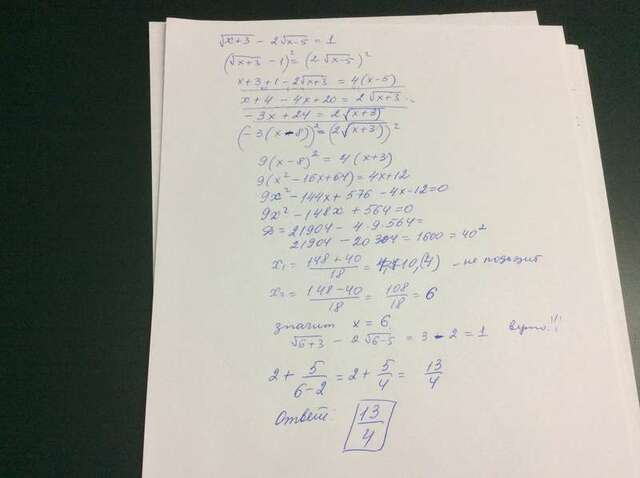 √x+3 - 2√x-5 = 1
(√x+3 - 1)² = (2√x-5)²
x+3+1-2√x+3 = 4(x-5)
x+4 - 4x+20 = 2√x+3
-3x+24 = 2√x+3
(-3(x-8))² = (2√x+3)²
9(x-8)² = 4(x+3)
9(x²-16x+64) = 4x+12
9x² - 144x + 576 - 4x - 12 = 0
9x² - 148x + 564 = 0
D = 21904 - 4·9·564 =
21904 - 20304 = 1600 = 40²
x₁ = 148+40/18 = 10,(4) - не подходит
x₂ = 148-40/18 = 108/18 = 6
значит x = 6
√6+3 - 2√6-5 = 3 - 2 = 1 верно!!!
2 + 5/6-2 = 2 + 5/4 = 13/4
Ответ: 13/4